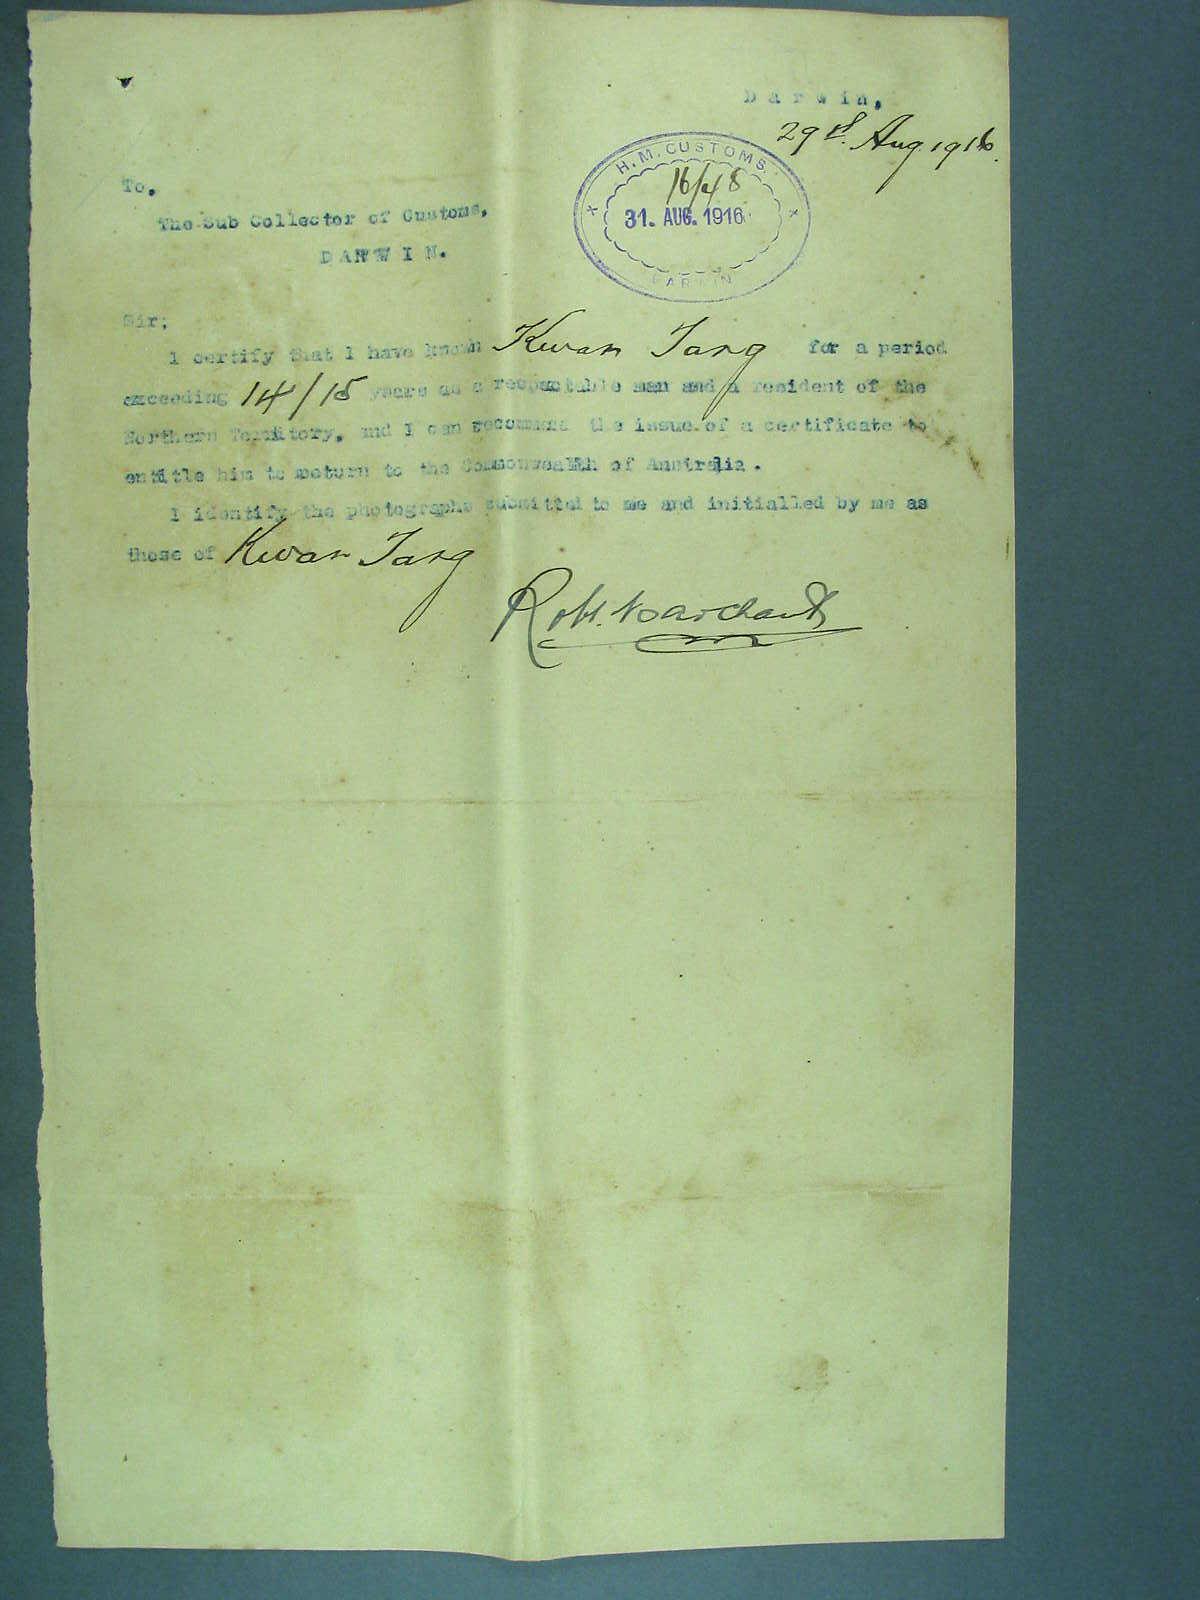 Darwin,
29rd. Aug. 1916.
H.M. CUSTOMS.
16/48
31. AUG. 1916
DARWIN
To,
The Sub Collector of Customs,
DARWIN.
Sir;
I certify that I have known Kwan Tang for a period
exceeding 14/15 years as a respectable man and a resident of the
Northern Territory, and I can recommend the issue of a certificate to
entitle him to return to the Commonwealth of Australia.
I identify the photographs submitted to me and initialled by me as
those of Kwan Tang
Robt.